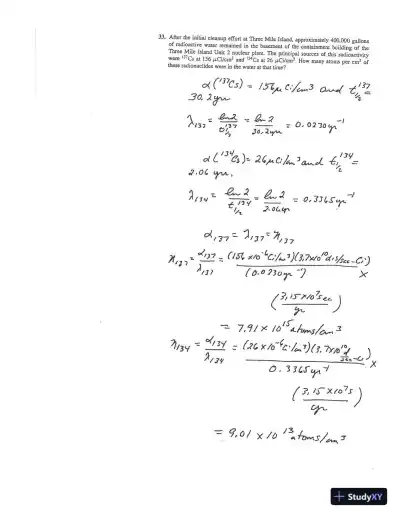 33. After the initial cleanup effort at Three Mile Island, approximately 400,000 gallons
of radioactive water remained in the basement of the containment building of the
Three Mile Island Unit 2 nuclear plant. The principal sources of this radioactivity
were ¹³⁷Cs at 156 μCi/cm³ and ¹³⁴Cs at 26 μCi/cm³. How many atoms per cm³ of
these radionuclides were in the water at that time?
α(¹³⁷Cs) = 156μCi/cm³ and t₁/₂¹³⁷ =
30.2yr
λ₁₃₇ = ln2/t₁/₂¹³⁷ = ln 2/30.2yr = 0.0230yr⁻¹
α(¹³⁴Cs) = 26μCi/cm³ and t₁/₂¹³⁴ =
2.06 yr.
λ₁₃₄ = ln 2/t₁/₂¹³⁴ = ln 2/2.06yr = 0.3365yr⁻¹
α₁₃₇ = λ₁₃₇ = n₁₃₇
n₁₃₇ = α₁₃₇/λ₁₃₇ = (156 x10⁻⁶Ci/cm³)(3.7x10¹⁰dis/sec-Ci)/(0.0230yr⁻¹) x
(3.15x10⁷sec/yr)
= 7.91 x 10¹⁵ atoms/cm³
n₁₃₄ = α₁₃₄/λ₁₃₄ = (26x10⁻⁶Ci/cm³)(3.7x10¹⁰d/sec-Ci)/0.3365yr⁻¹ x
(3.15 x10⁷s/yr)
= 9.01 x 10¹³ atoms/cm³
StudyXY